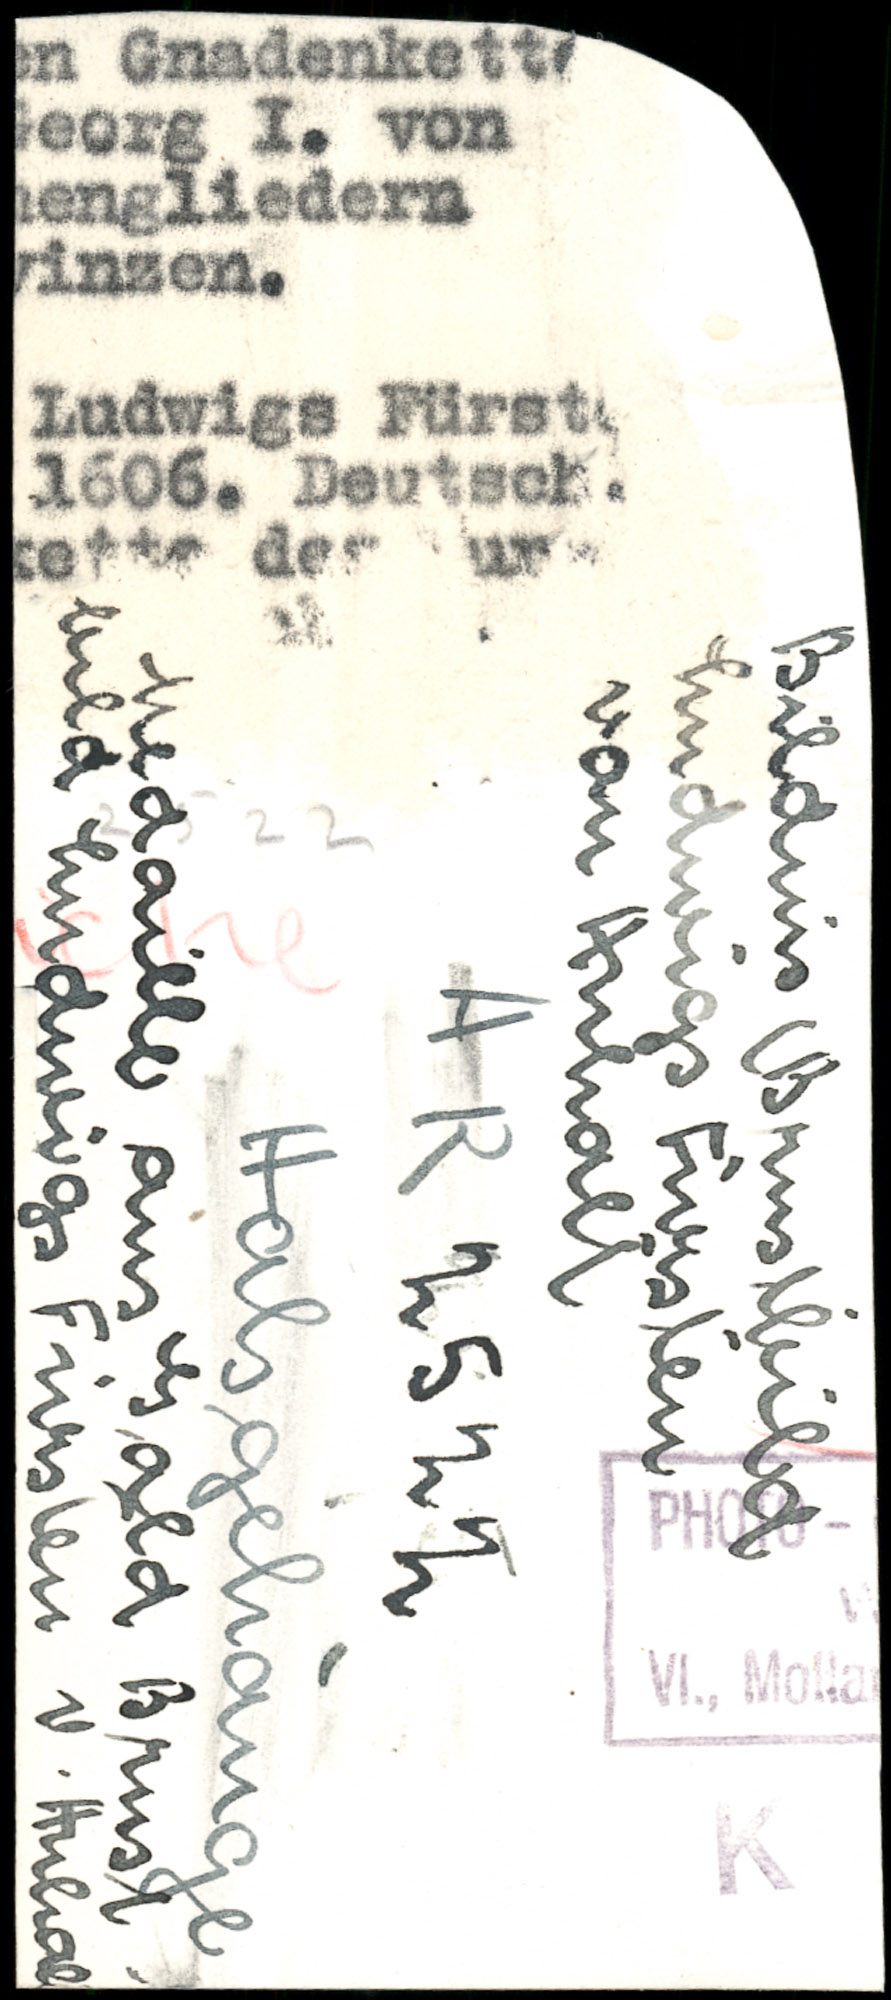 en Gnadenkette
Georg I. von
engliedern
vinzen.
Ludwigs Fürst
1606. Deutsch.
kette der ur
Bildnis (Brustbild)
Ludwigs Fürsten
von Anhalt
AR 2522
Halsgehänge
Medaille aus Gold Brust-
bild Ludwigs Fürsten v. Anhal
2522
PHOTO -
VI., Molla
K